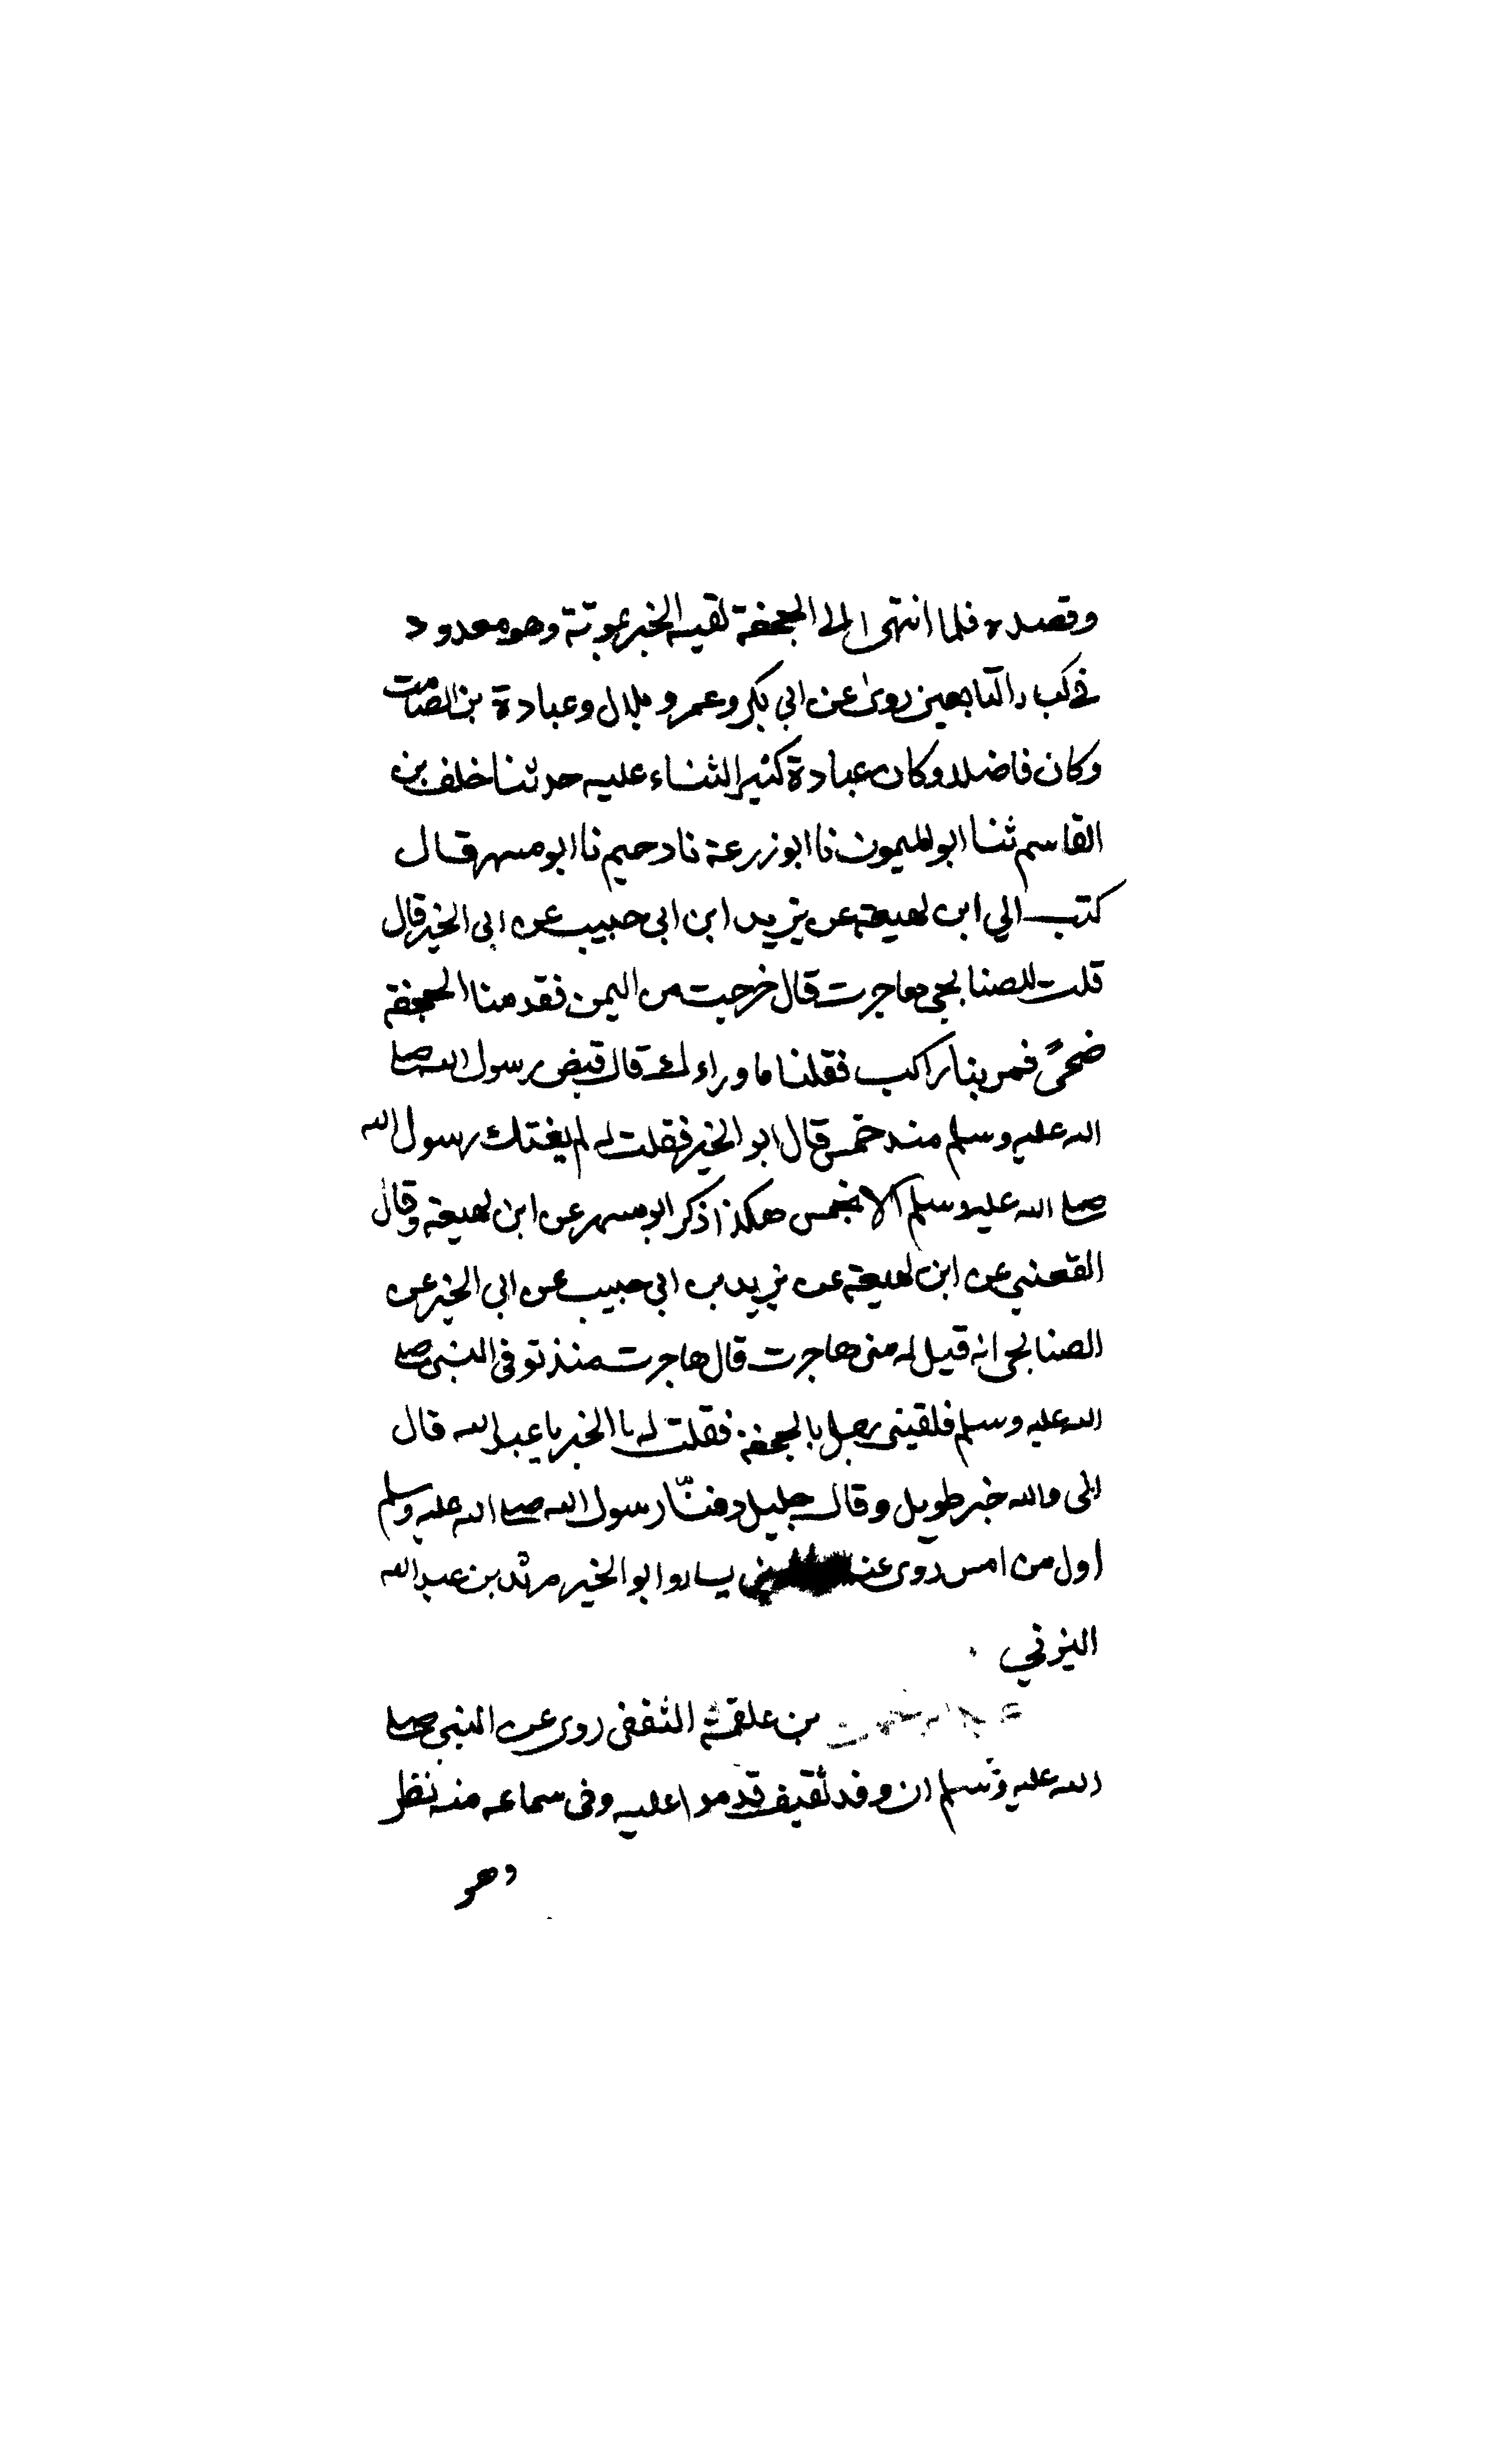 وقصده فلما انتهى الى الجحفة لقيه الخبر بموته وهو معدود
في كبار التابعين روى عن ابي بكر وعمر و بلال وعبادة بن الصامت
وكان فاضلا وكان عبادة كثير الثناء عليه حدثنا خلف بن
القاسم ثنا ابو الميمون نا ابو زرعة نا دحيم نا ابو مسهر قال
كتب الي ابن لهيعة عن يزيد ابن ابى حبيب عن ابى الخير قال
قلت للصنابحى هاجرت قال خرجت من اليمن فقدمنا الجحفة
ضحىً فمر بنا راكب فقلنا ما وراءك قال قبض رسول الله صلى
الله عليه وسلم منذ خمس قال ابو الخير فقلت له لم يفتك رسول الله
صلى الله عليه وسلم الا بخمس هكذا ذكر ابو مسهر عن ابن لهيعة وقال
القعنبي عن ابن لهيعة عن يزيد بن ابى حبيب عن ابى الخير عن
الصنابحى انه قيل له متى هاجرت قال هاجرت منذ توفى النبى صلى
الله عليه وسلم فلقينى رجل بالجحفة فقلت له ما الخبر يا عبد الله قال
الى والله خبر طويل وقال جليل دفنّا رسول الله صلى الله عليه وسلم
اول من امس روى عنه يسار وابو الخير مرثد بن عبد الله
اليزني
بن علقمة الثقفى روى عن النبى صلى
الله عليه وسلم ان وفد ثقيف قدموا عليه وفى سماعه منه نظر
وهو